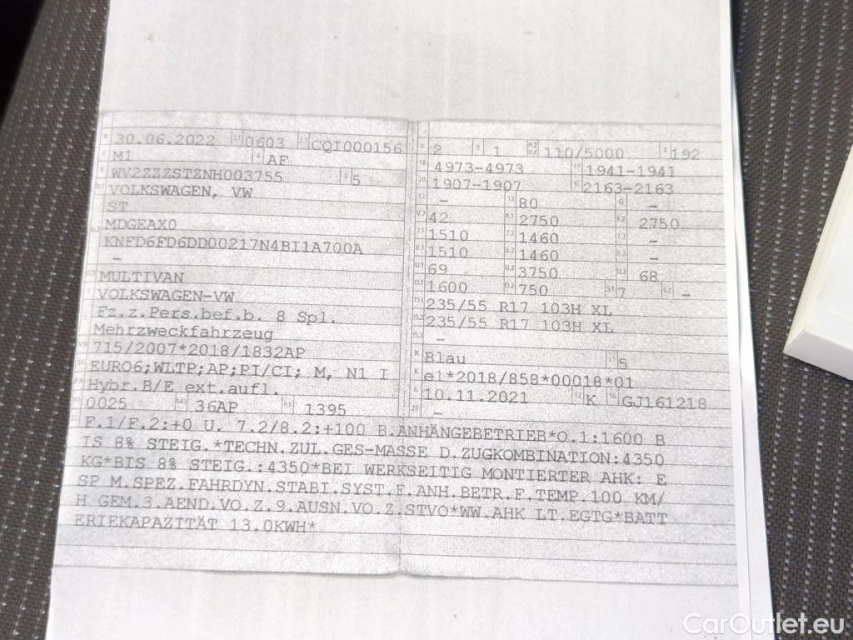 30.06.2022 0603 CQI000156
M1 AF
WV2ZZZSTZNH003755 5
VOLKSWAGEN, VW
ST
MDGEAX0
KNFD6FD6DD00217N4BI1A700A
–
MULTIVAN
VOLKSWAGEN-VW
Fz.z.Pers.bef.b. 8 Spl.
Mehrzweckfahrzeug
715/2007*2018/1832AP
EURO6;WLTP;AP;PI/CI; M, N1 I
Hybr.B/E ext.aufl.
0025 36AP 1395
2 1 110/5000 192
4973-4973 1941-1941
1907-1907 2163-2163
– 80 –
42 2750 2750
1510 1460 –
1510 1460 –
69 3750 68
1600 750 7 –
235/55 R17 103H XL
235/55 R17 103H XL
–
Blau 5
e1*2018/858*00018*01
10.11.2021 K GJ161218
–
F.1/F.2:+0 U. 7.2/8.2:+100 B.ANHÄNGEBETRIEB*O.1:1600 B
IS 8% STEIG.*TECHN.ZUL.GES-MASSE D.ZUGKOMBINATION:4350
KG*BIS 8% STEIG.:4350*BEI WERKSEITIG MONTIERTER AHK: E
SP M.SPEZ.FAHRDYN.STABI.SYST.F.ANH.BETR.F.TEMP.100 KM/
H GEM.3.AEND.VO.Z.9.AUSN.VO.Z.STVO*WW.AHK LT.EGTG*BATT
ERIEKAPAZITÄT 13.0KWH*
CarOutlet.eu